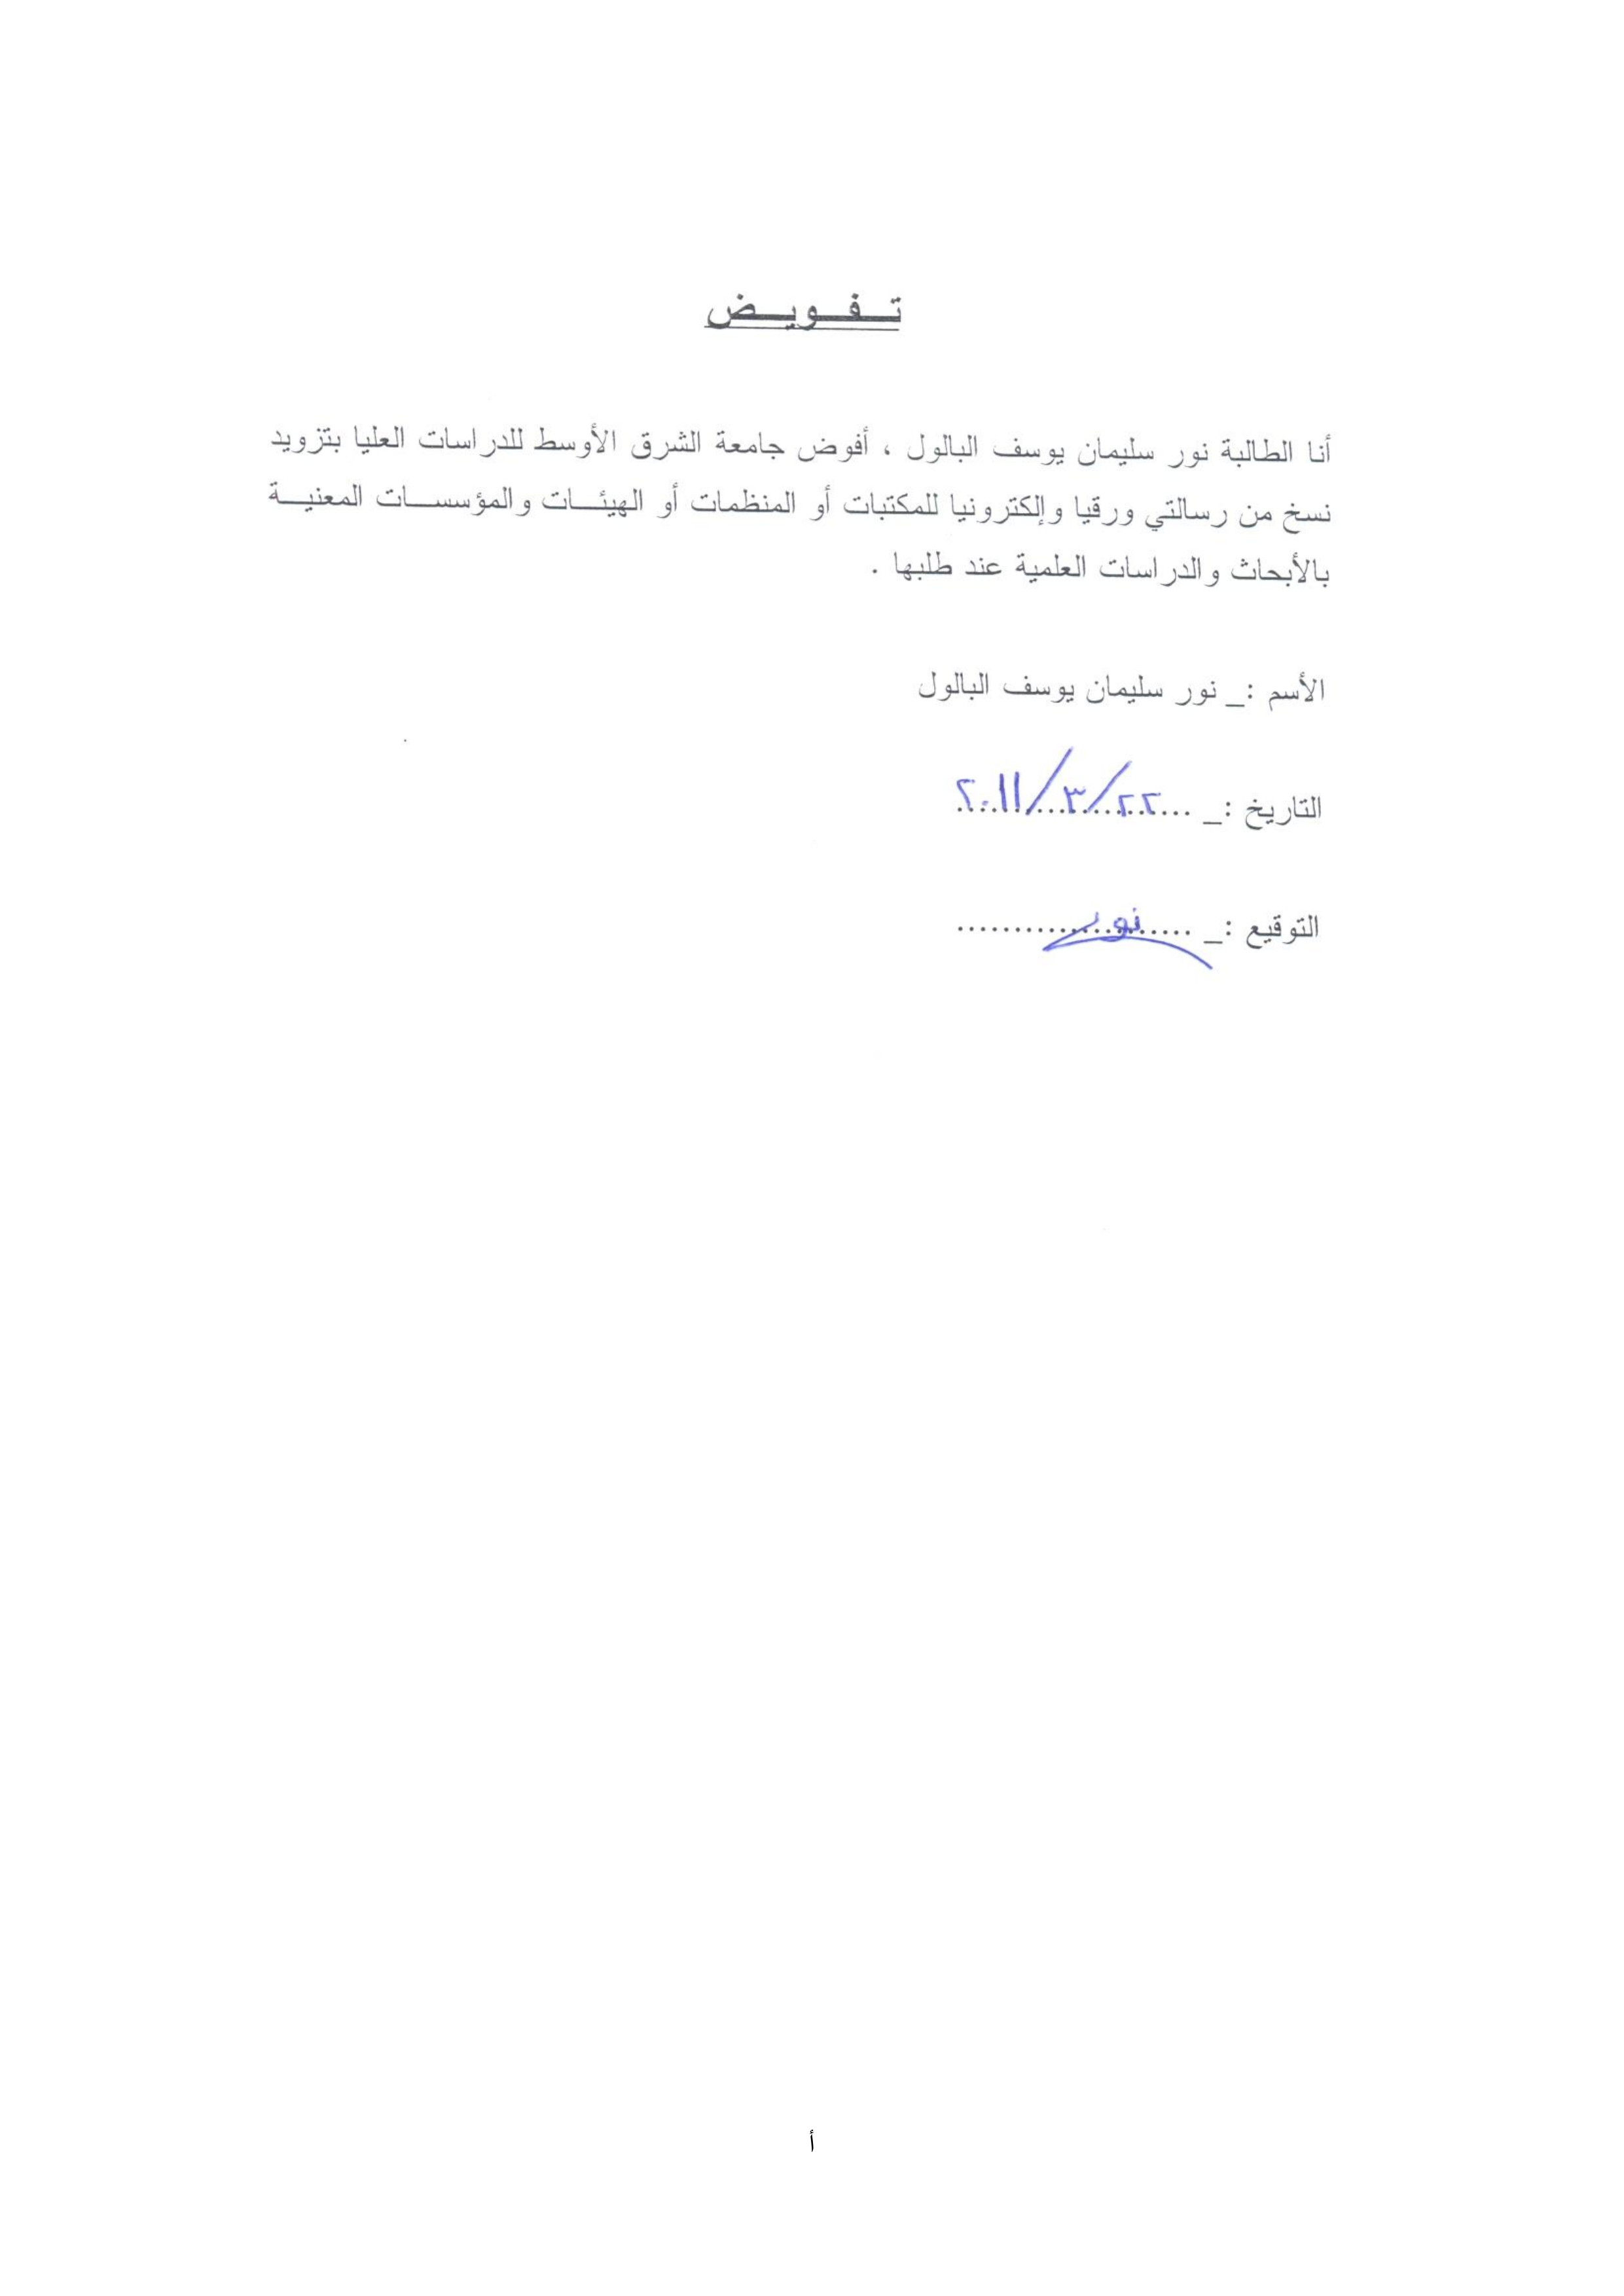 تـــفـــويـــض
أنا الطالبة نور سليمان يوسف البالول ، أفوض جامعة الشرق الأوسط للدراسات العليا بتزويد
نسخ من رسالتي ورقيا وإلكترونيا للمكتبات أو المنظمات أو الهيئــات والمؤسســات المعنيــة
بالأبحاث والدراسات العلمية عند طلبها .
الأسم :_ نور سليمان يوسف البالول
التاريخ :_ ٢٢/٣/٢٠١١
التوقيع :_ نور
أ